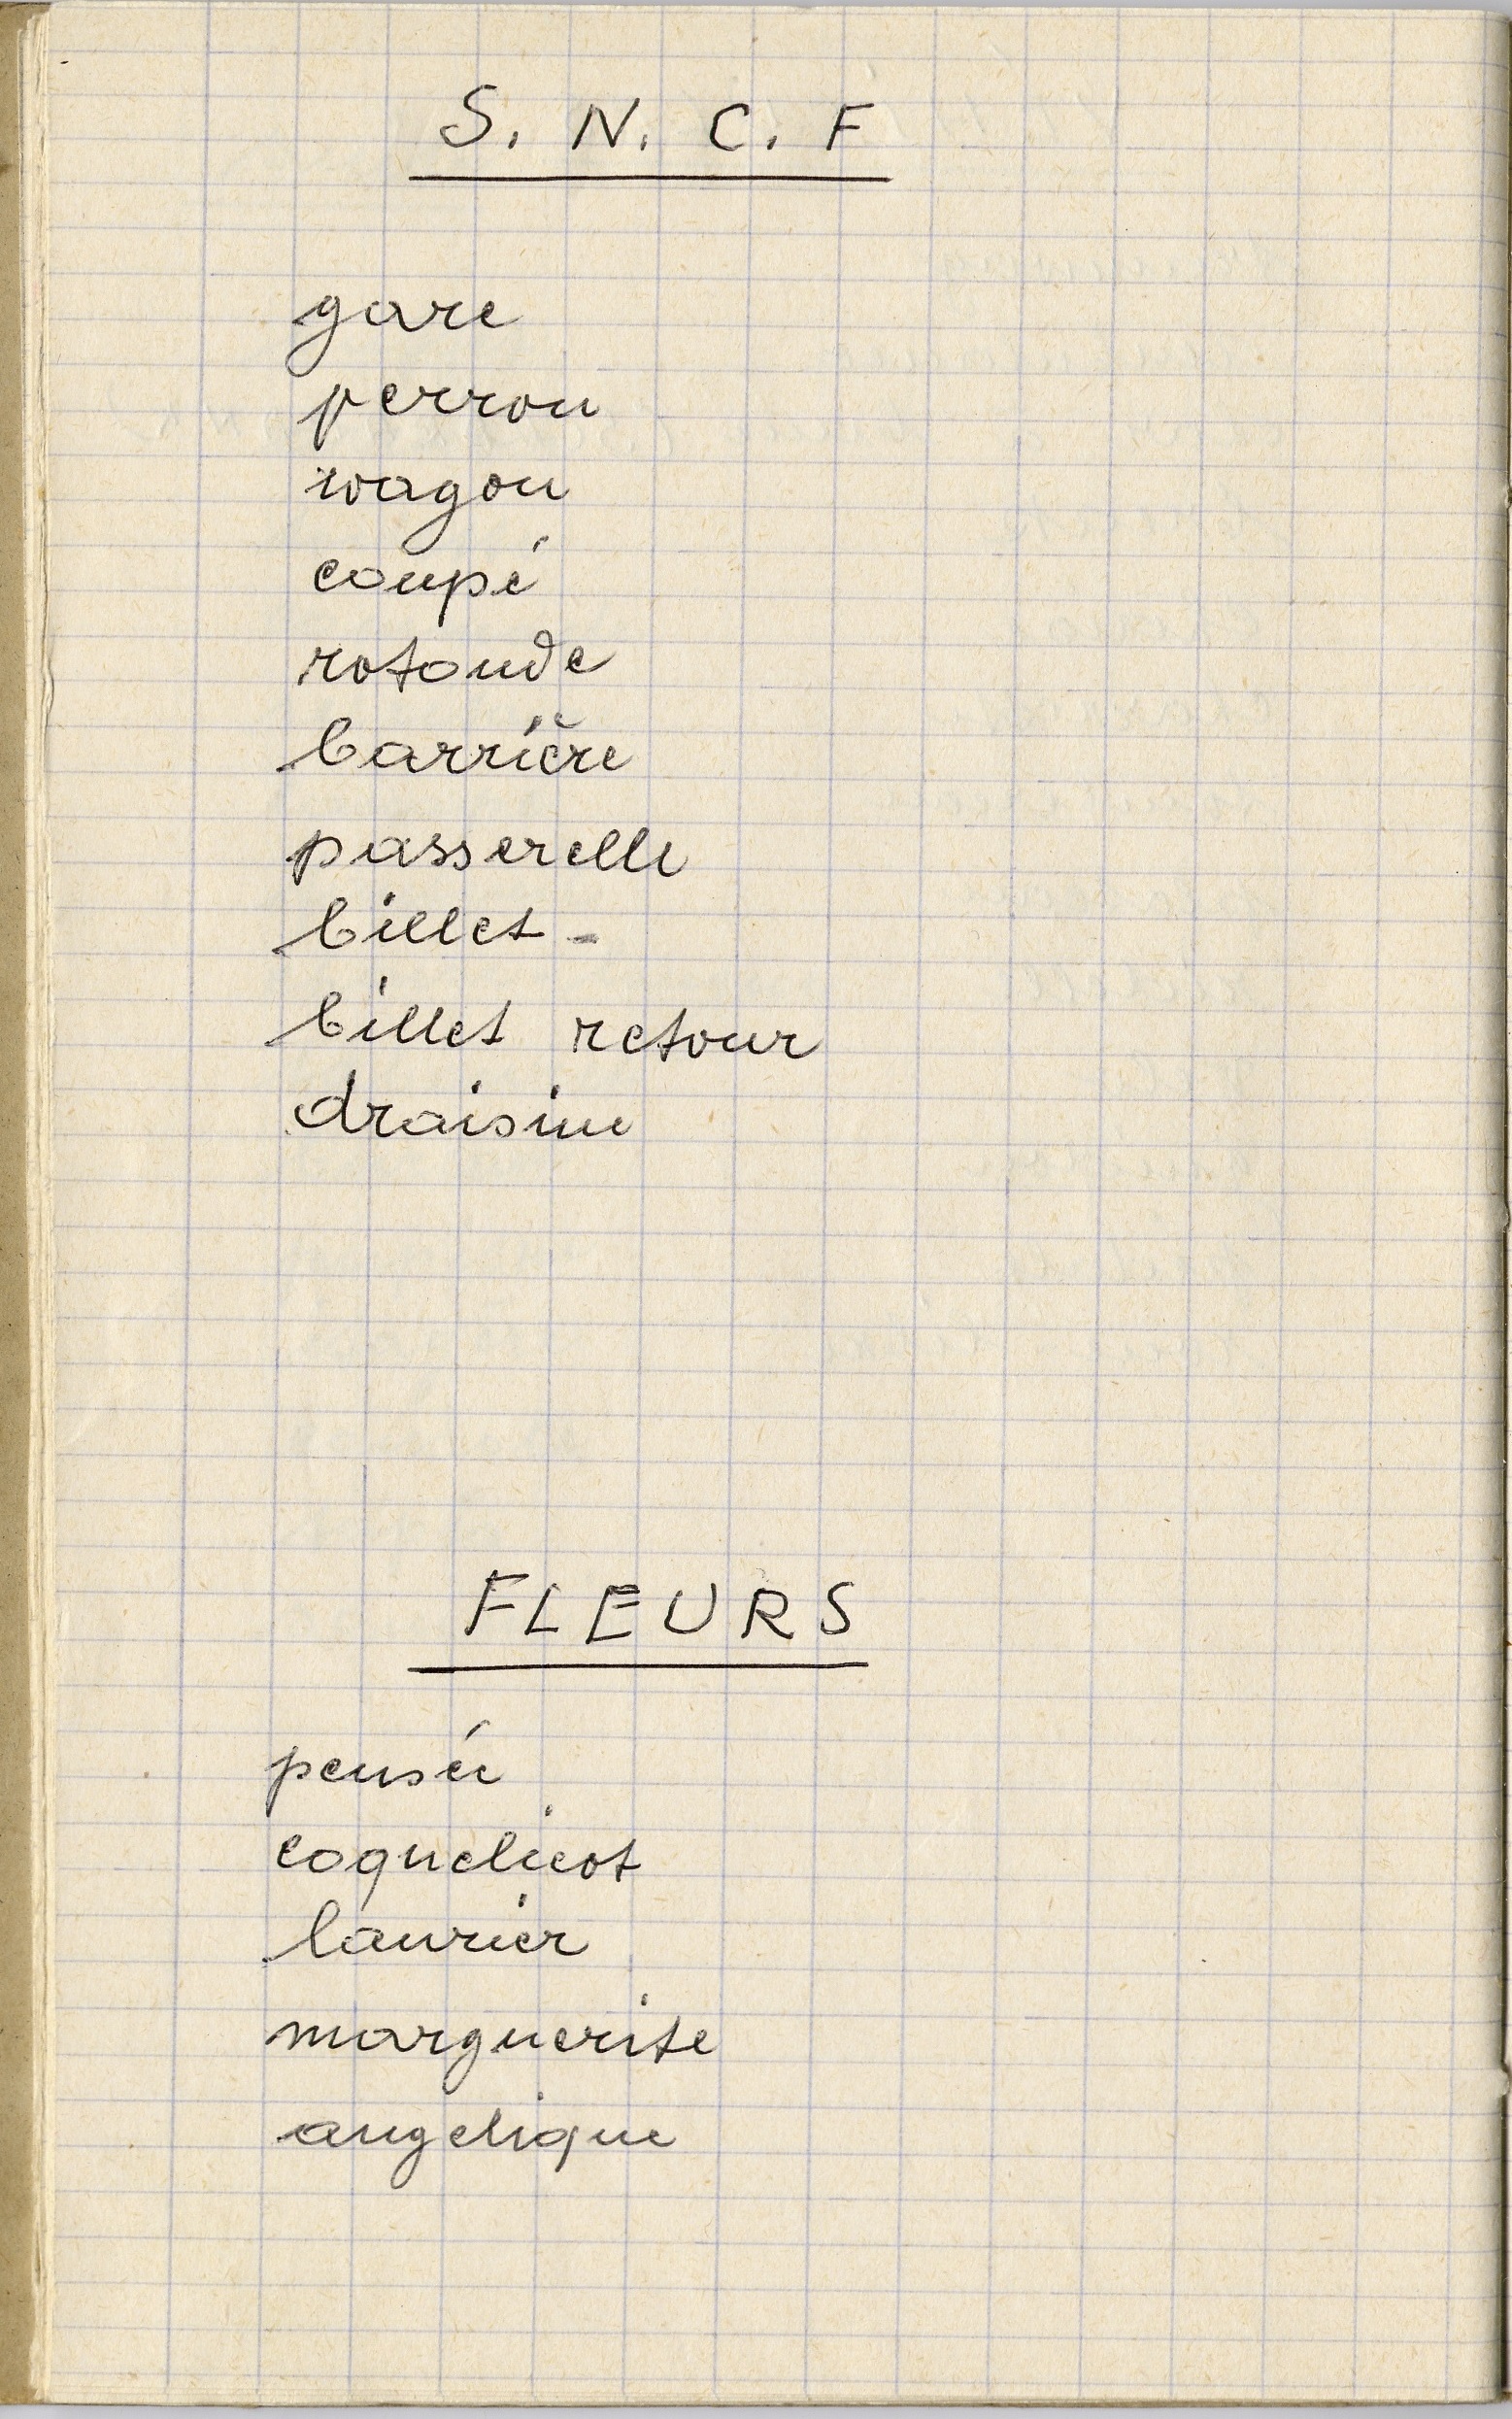 S. N. C. F
gare
perron
wagon
coupé
rotonde
barrière
passerelle
billet -
billet retour
draisine
FLEURS
pensée
coquelicot
laurier
marguerite
angelique